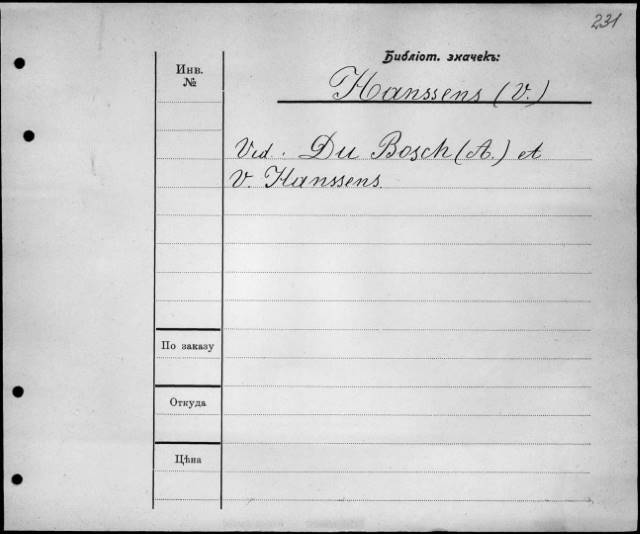 231
Библіот. значекъ:
Инв.
№
Hanssens (V.)
Vid. Du Bosch (A.) et
V. Hanssens.
По заказу
Откуда
Цѣна